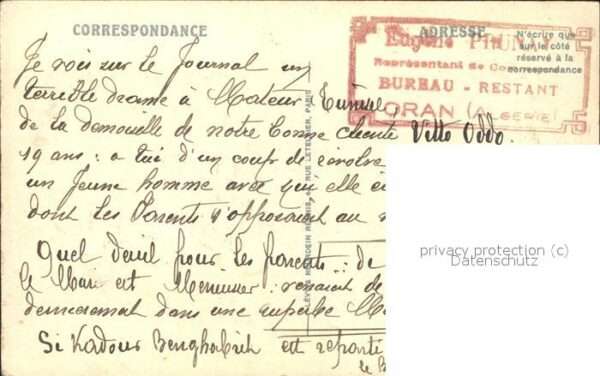 CORRESPONDANCE
ADRESSE
N'écrire que
sur le côté
réservé à la
correspondance
Eugène
Représentant de
BUREAU - RESTANT
ORAN (ALGERIE)
Je vois sur le Journal un
terrible drame à Mateur Tunisie,
de la demoiselle de notre bonne cliente Vitto Oddo.
19 ans : a tué d'un coup de révolve
un Jeune homme avec qui elle
dont les Parents s'opposaient au
Quel deuil pour les parents : de
le Mari est Menuisier : venait de
demeurant dans une superbe
Si Kadour Benghabrit est reparti
le
LEVY & NEURDEIN RÉUNIS, 44, RUE LETELLIER, PARIS
privacy protection (c)
Datenschutz